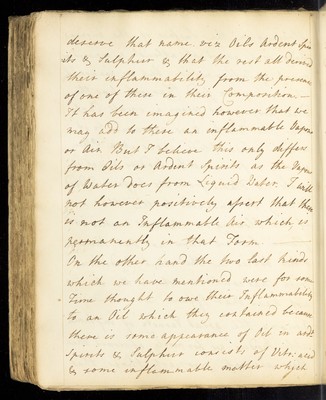 deserve that name viz Oils Ardent Spir
its & Sulphur & that the rest all derived
their inflammability from the presence
of one of these in their Composition —
It has been imagined however that we
may add to these an inflammable Vapour
or Air But I believe this only differs
from Oils or Ardent Spirits as the Vapour
of Water does from Liquid Water, I will
not however positively assert that there
is not an Inflammable Air which is
permanently in that Form —
On the other hand the two last kinds
which we have mentioned were for some
Time thought to owe their Inflammability
to an Oil which they contained because
there is some appearance of Oil in ardt
Spirits & Sulphur consists of Vitri: acid
& some inflammable matter which